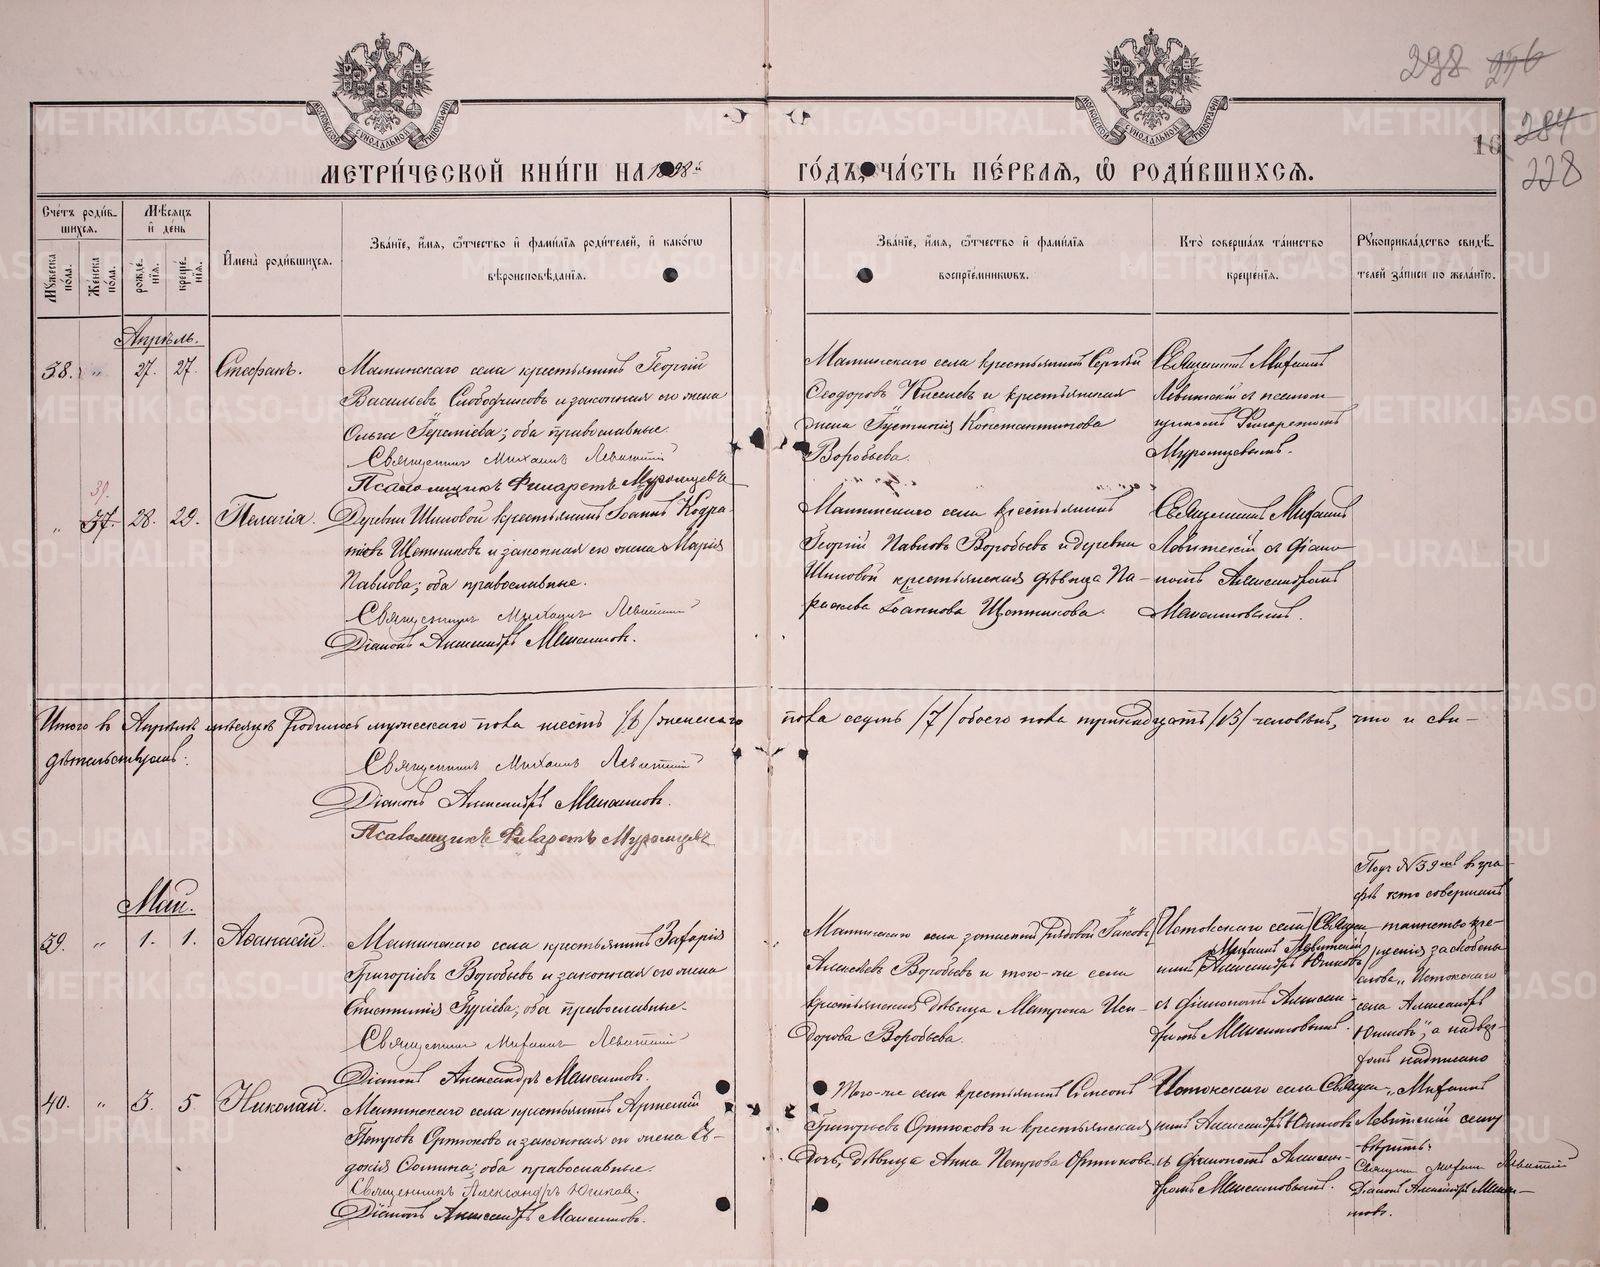 298 256
284
228
16
МОСКОВСКОЙ СѴНОДАЛЬНОЙ ТИПОГРАФІИ
МОСКОВСКОЙ СѴНОДАЛЬНОЙ ТИПОГРАФІИ
МЕТРИ́ЧЕСКОЙ КНИ́ГИ НА 1898й ГО́ДЪ, ЧА́СТЬ ПЕ́РВАЯ, Ѽ РОДИ́ВШИХСЯ.
Сче́тъ роди́вшихся.
Мꙋжеска по́ла.
Же́нска по́ла.
Мѣ́сяцъ и҆ де́нь
рожде́нїя.
креще́нїя.
И҆мена̀ роди́вшихся.
Зва́нїе, и҆́мя, ѻ҆́тчество и҆ фами́лїя роди́телей, и҆ како́гѡ вѣроисповѣ́данїя.
Зва́нїе, и҆́мя, ѻ҆́тчество и҆ фами́лїя воспрїе́мникѡвъ.
Кто̀ соверша́лъ та́инство креще́нїя.
Рꙋкоприкла́дство свидѣ́телей за́писи по жела́нїю.
Апрѣль.
38. „ 27. 27. Стефанъ.
Маминскаго села крестьянинъ Георгій
Васильевъ Слободчиковъ и законная его жена
Ольга Іереміева; оба православные.
Священникъ Михаилъ Левитскій
Псаломщикъ Филаретъ Муромцевъ
Маминскаго села крестьянинъ Сергѣй
Ѳеодоровъ Киселевъ и крестьянская
жена Іустинія Константинова
Воробьева.
Священникъ Михаилъ
Левитскій съ псалом-
щикомъ Филаретомъ
Муромцевымъ.
39.
„ 37. 28. 29. Пелагія.
Деревни Шиловой крестьянинъ Іоаннъ Кодра-
тіевъ Щетниковъ и законная его жена Марія
Павлова; оба православные.
Священникъ Михаилъ Левитскій
Діаконъ Александръ Максимовъ.
Маминскаго села крестьянинъ
Георгій Павловъ Воробьевъ и деревни
Шиловой крестьянская дѣвица Па-
раскева Іоаннова Щетникова.
Священникъ Михаилъ
Левитскій съ діако-
номъ Александромъ
Максимовымъ.
Итого въ Апрѣлѣ мѣсяцѣ родилось мужескаго пола шесть /6/ женскаго пола семь /7/ обоего пола тринадцать /13/ человѣкъ, что и сви-
дѣтельствуемъ:
Священникъ Михаилъ Левитскій
Діаконъ Александръ Максимовъ.
Псаломщикъ Филаретъ Муромцевъ
Май.
39. „ 1. 1. Аѳанасій.
Маминскаго села крестьянинъ Захарія
Григоріевъ Воробьевъ и законная его жена
Епистимія Гуріева, оба православные.
Священникъ Михаилъ Левитскій
Діаконъ Александръ Максимовъ.
Маминскаго села запасный рядовой Іаковъ
Алексѣевъ Воробьевъ и того-же села
крестьянская дѣвица Матрона Иси-
дорова Воробьева.
[Истокскаго села] Священ-
Михаилъ Левитскій
никъ Александръ Юшковъ
съ діакономъ Алексан-
дромъ Максимовымъ.
Подъ №39мъ въ гра-
фѣ кто совершалъ
таинство кре-
щенія за скобены
слова „Истокскаго
села Александръ
Юшковъ", а надвер-
хомъ надписано
„Михаилъ
Левитскій сему
вѣрить.
Священ. Михаилъ Левитскій
Діаконъ Александръ Макси-
мовъ.
40. „ 3. 5. Николай.
Маминскаго села крестьянинъ Артемій
Петровъ Ортюковъ и законная его жена Ев-
докія Ѳомина; оба православные.
Священникъ Александръ Юшковъ.
Діаконъ Александръ Максимовъ.
Того-же села крестьянинъ Симеонъ
Григорьевъ Ортюковъ и крестьянская
дочь, дѣвица Анна Петрова Ортюкова
Истокскаго села Священ-
никъ Александръ Юшковъ
съ діакономъ Алексан-
дромъ Максимовымъ.
METRIKI.GASO-URAL.RU